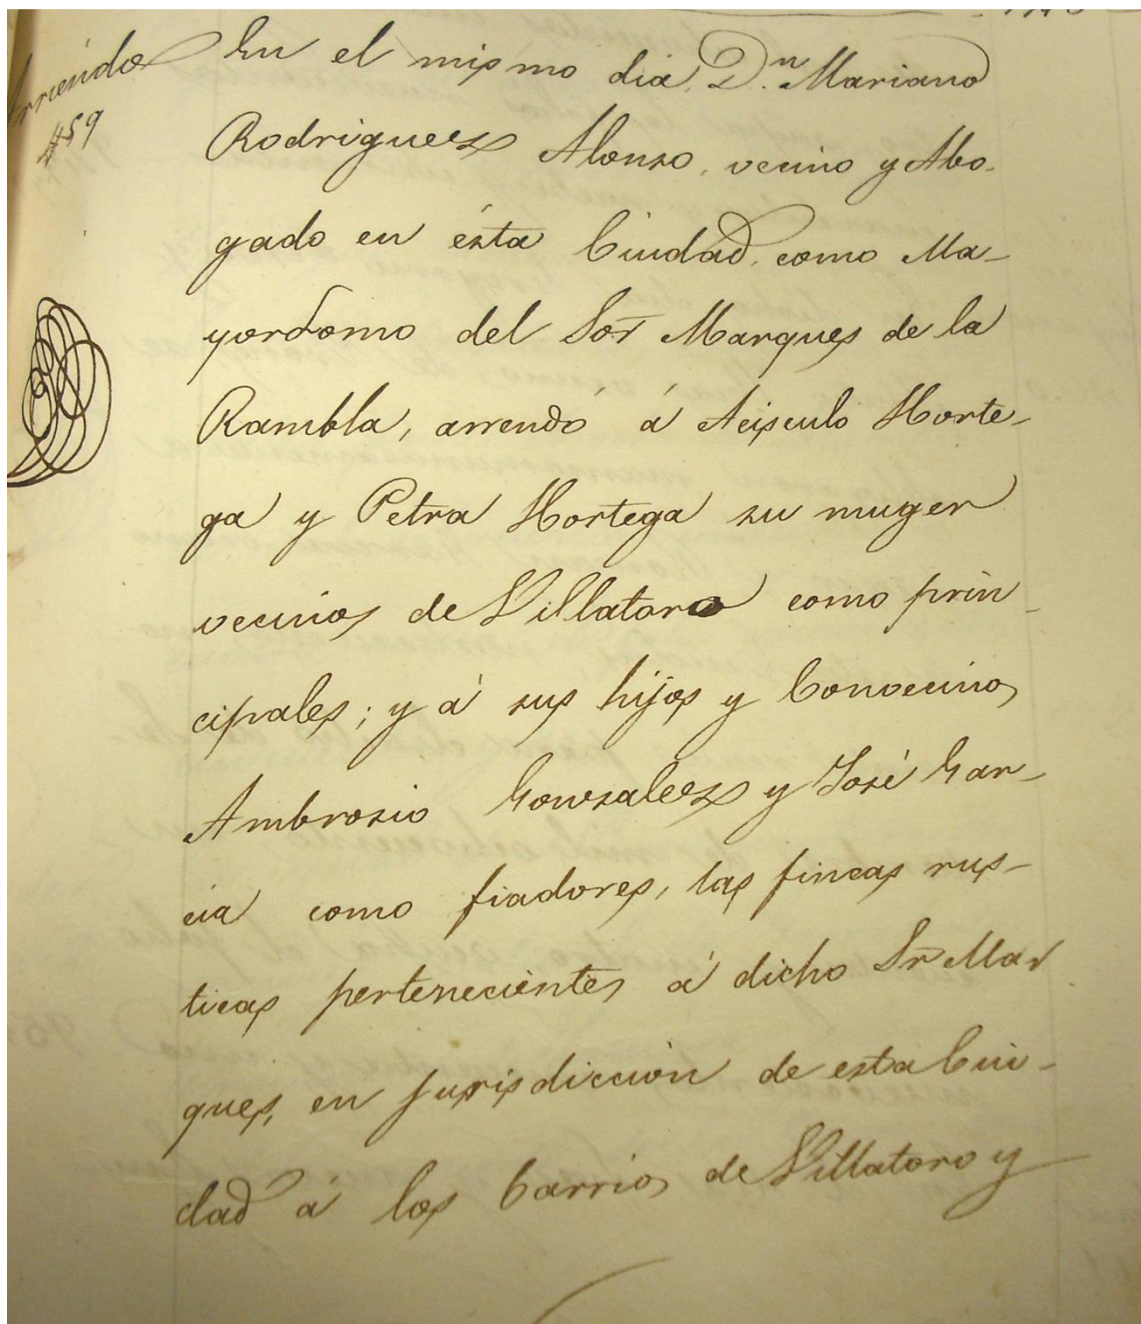 Arriendo
#59
En el mismo dia, Dn. Mariano
Rodriguez Alonso, vecino y Abo-
gado en ésta Ciudad, como Ma-
yordomo del Sor Marques de la
Rambla, arrendó á Acisculo Horte-
ga y Petra Hortega su muger
vecinos de Villatoro como prin-
cipales; y á sus hijos y Convecinos
Ambrosio Gonzalez y José Gar-
cia como fiadores, las fincas rus-
ticas pertenecientes á dicho Sr Mar
ques, en jurisdiccion de esta Ciu-
dad á los barrios de Villatoro y